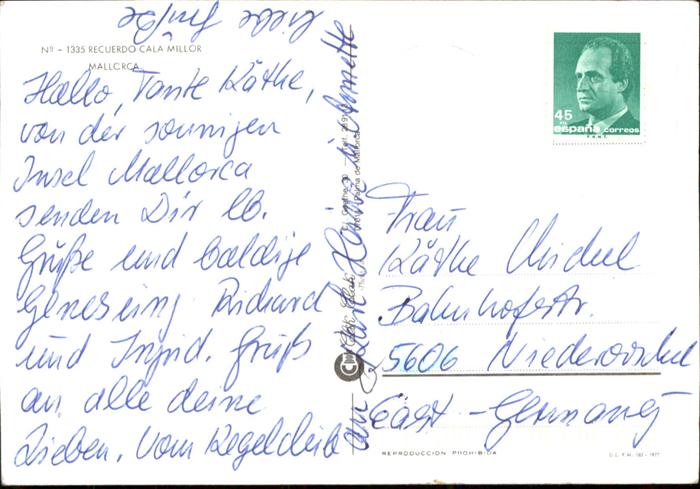 Nº - 1335 RECUERDO CALA MILLOR
MALLORCA
Hallo, Tante Käthe,
von der sonnigen
Insel Mallorca
senden Dir lb.
Grüße und baldige
Genesung Richard
und Ingrid. Gruß
an alle deine
Lieben. Vom Kegelclub
an Karl Heinz u Annette
liebe Grüße
45
PTA
españa correos
Frau
Käthe Michel
Bahnhofstr.
5606 Niederorschel
East-Germany
REPRODUCCION PROHIBIDA